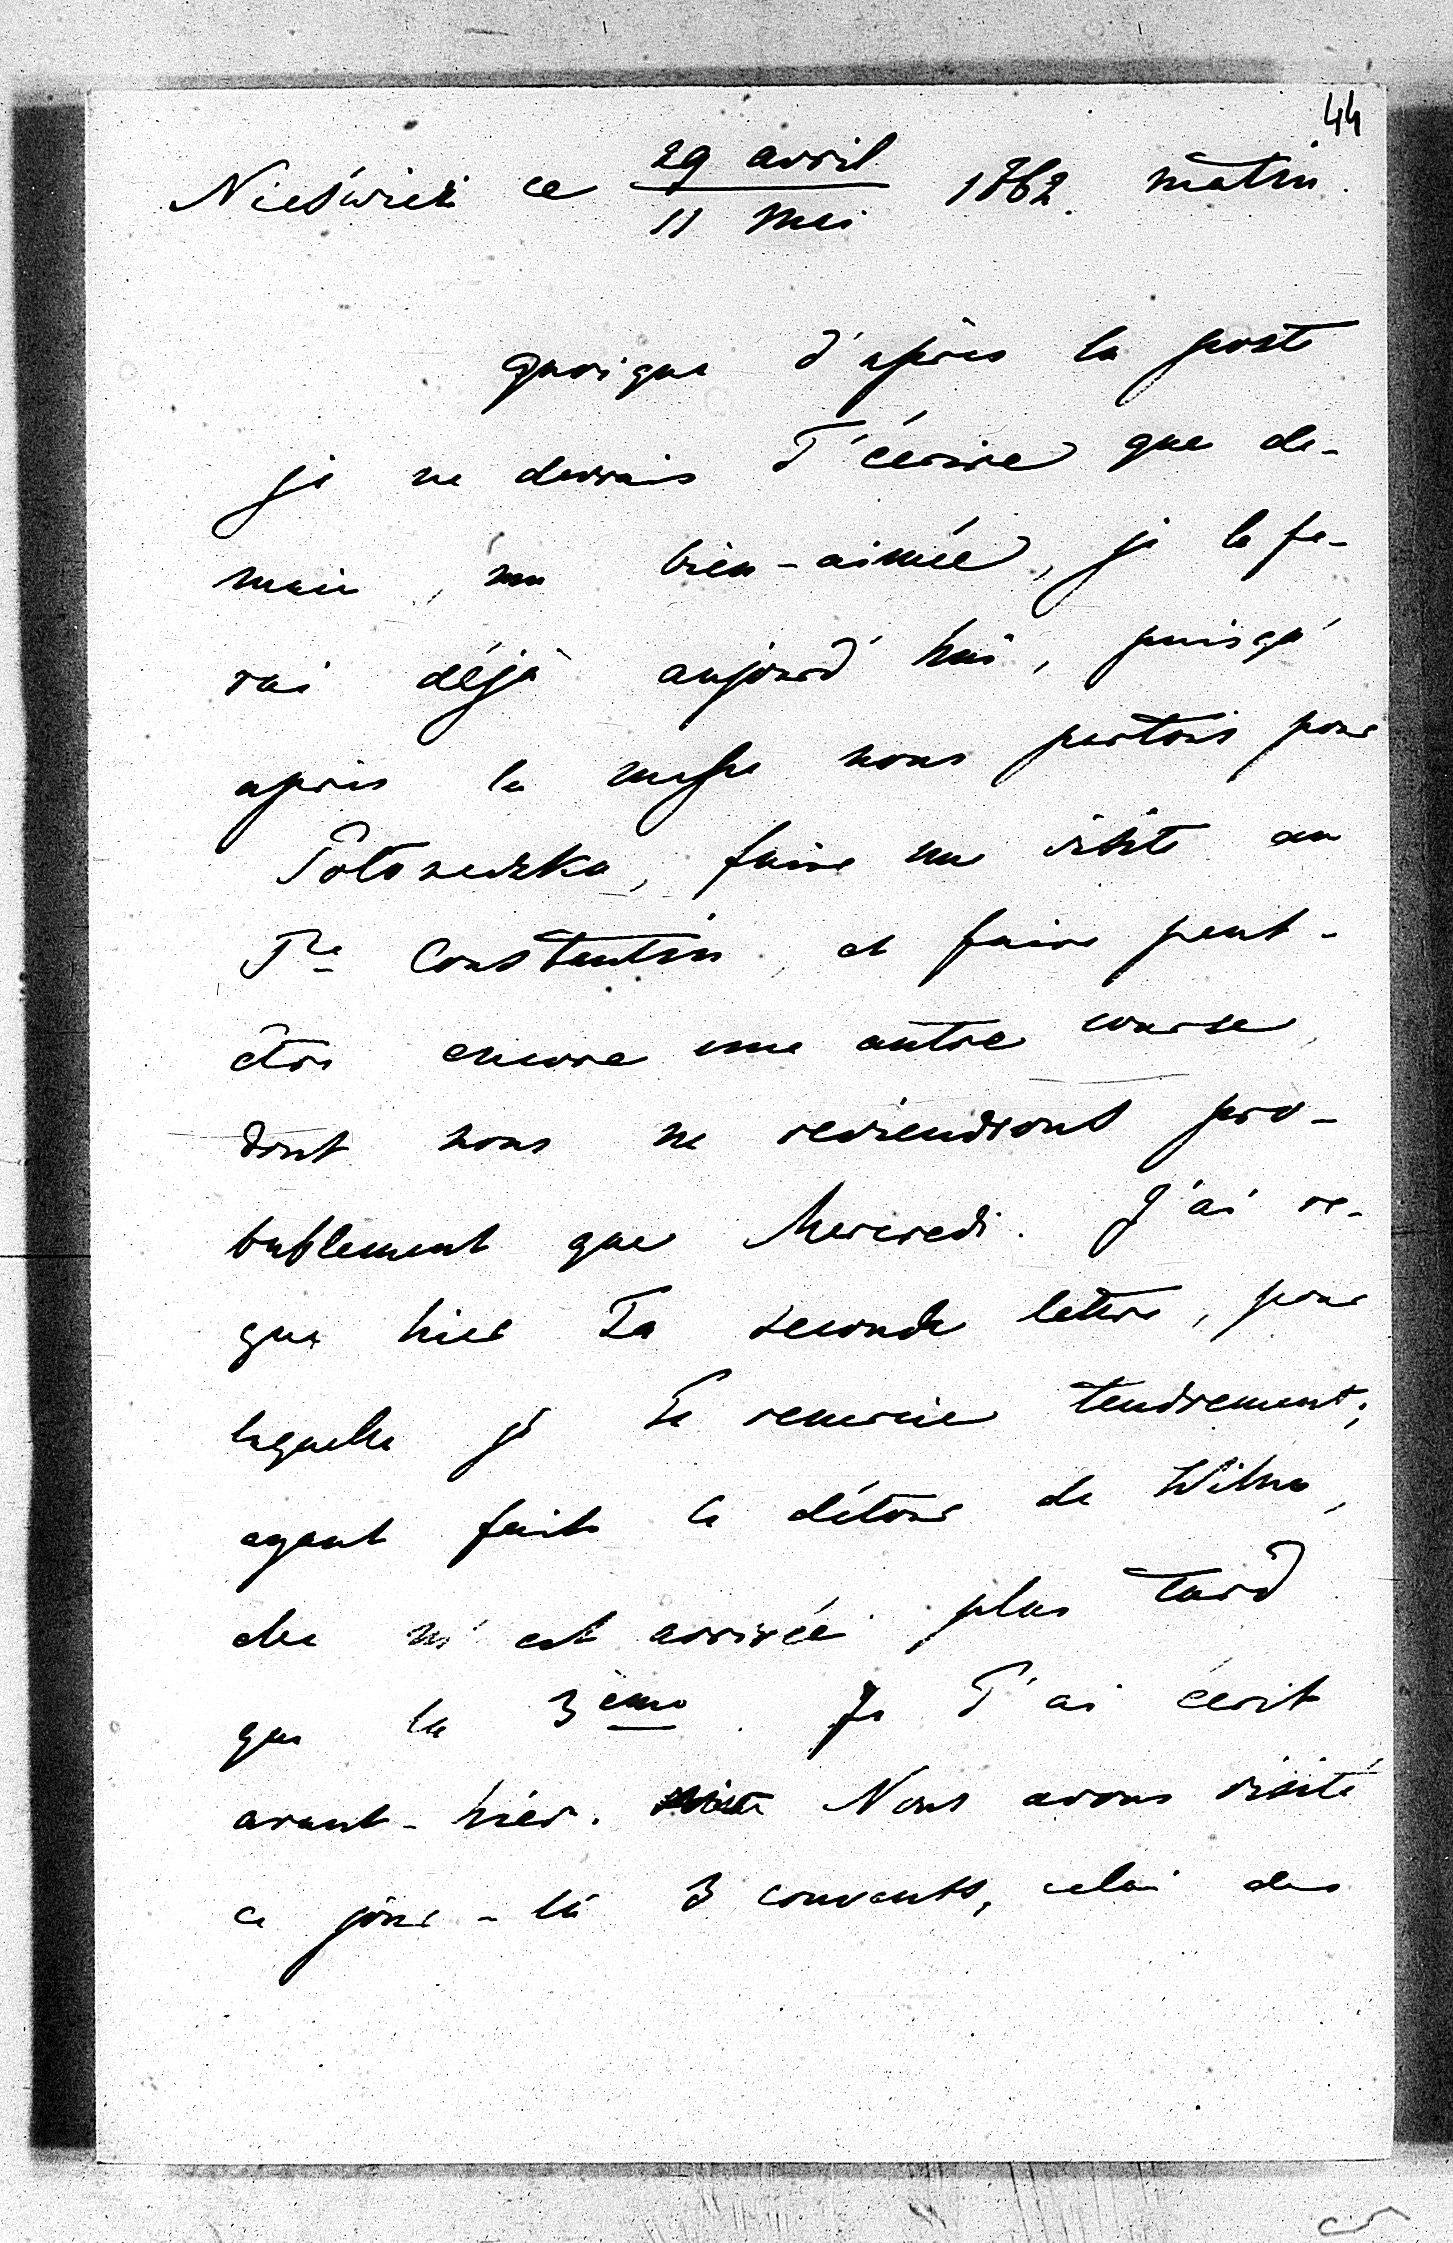 44
Nieśwież ce 29 avril / 11 Mai 1862. matin.
Quoique d'après la poste
je ne devrais T'écrire que de-
main, ma bien-aimée, je le fe-
rai déjà aujourd'hui, puisqu'
après la messe nous partons pour
faire une visite au
Pce Constantin, et faire peut-
être encore une autre course,
dont nous ne reviendrons pro-
bablement que Mercredi. J'ai re-
çue hier Ta seconde lettre, pour
laquelle je Te remercie tendrement;
ayant faite le détour de Wilna,
elle m'est arrivée plus tard
que la 3ème. Je T'ai écrit
avant-hier. Nous avons visité
ce jour-là 3 couvents, celui des